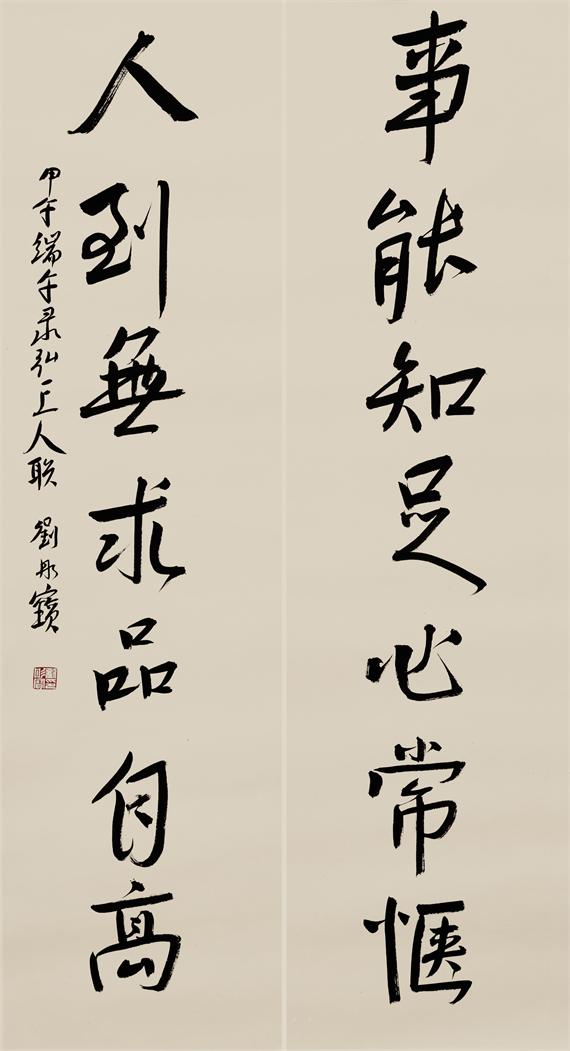 事能知足心常愜
人到無求品自高
甲午端午录弘一上人联 劉彤寶